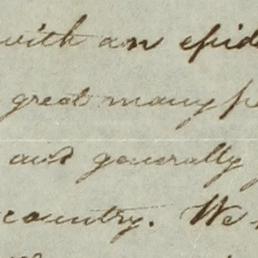 with an epid
great many pe
and generally
country. We